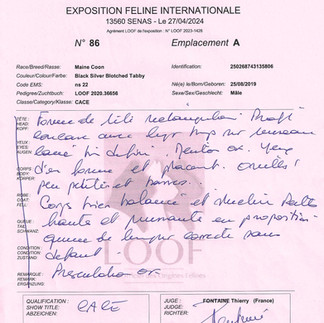 EXPOSITION FELINE INTERNATIONALE
13560 SENAS - Le 27/04/2024
Agrément LOOF de l'exposition : N° LOOF 2023-1428
N° 86 Emplacement A
Race/Breed/Rasse: Maine Coon Identification: 250268743135806
Couleur/Colour/Farbe: Black Silver Blotched Tabby
Code EMS: ns 22 Né(e) le/Born/Geboren: 25/08/2019
Pedigree/Zuchtbuch: LOOF 2020.36656 Sexe/Sex/Geschlecht: Mâle
Classe/Category/Klasse: CACE
TÊTE: HEAD: KOPF:
Forme de tête rectangulaire. Profil
concave avec
YEUX: EYES: AUGEN:
carré bien défini. Menton ok. Yeux
CORPS: BODY: KÖRPER:
d'en forme et placement. Oreilles
peu petites et
ROBE: COAT: FELL:
Corps bien balancé et médium Pattes
haute et puissante en proposition
QUEUE: TAIL: SCHWANZ:
queue de longueur correcte sans
CONDITION: CONDITION: ZUSTAND:
défaut.
REMARQUE: REMARK: ERGÄNZUNG:
Présentation ok.
LOOF
QUALIFICATION: SHOW TITLE: ABZEICHEN:
CACE
JUGE: JUDGE: RICHTER:
FONTAINE Thierry (France)